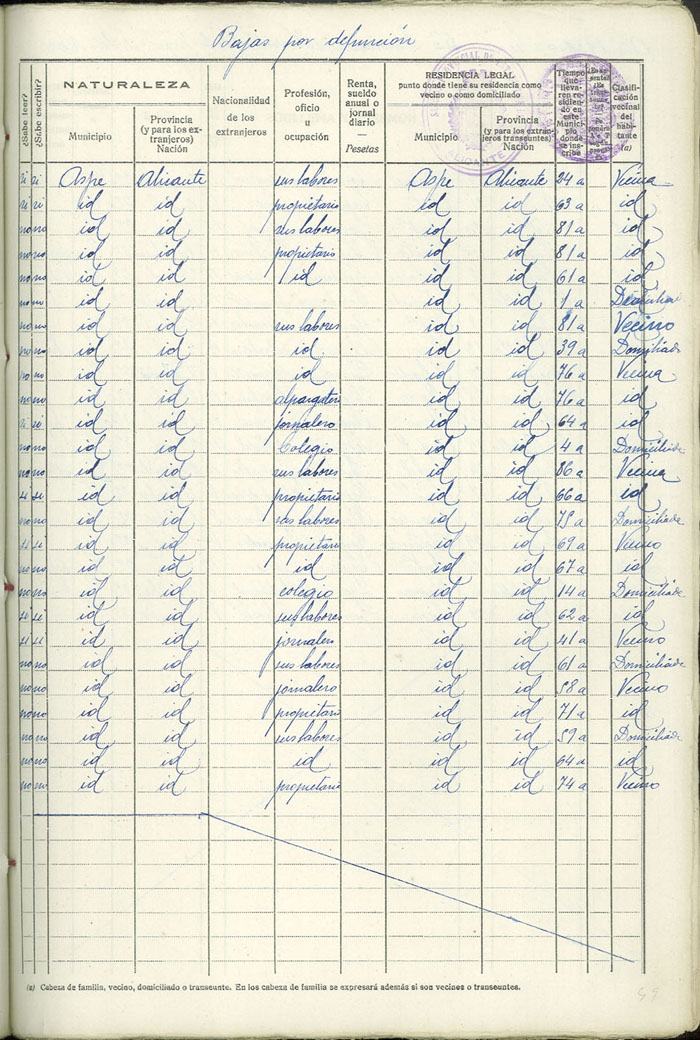 Bajas por defunción
¿Sabe leer? ¿Sabe escribir? NATURALEZA Nacionalidad de los extranjeros Profesión, oficio u ocupación Renta, sueldo anual o jornal diario — Pesetas RESIDENCIA LEGAL punto donde tiene su residencia como vecino o como domiciliado Tiempo que lleva-ren re-sidien-do en este Munici-pio donde se ins-cribe Clasifi-cación vecinal del habi-tante (a)
Municipio Provincia (y para los ex-tranjeros) Nación Municipio Provincia (y para los extran-jeros transeuntes) Nación
ALICANTE
si si Aspe Alicante sus labores Aspe Alicante 24 a Vecina
si si id id propietario id id 63 a id
no no id id sus labores id id 81 a id
no no id id propietario id id 81 a id
no no id id id id id 61 a id
no no id id id id 1 a
no no id id sus labores id id 81 a Vecino
no no id id id id id 39 a Domiliade
no no id id id id id 76 a Vecina
no no id id alpargatero id id 76 a id
si si id id jornalero id id 64 a id
no no id id Colegio id id 4 a Domiciliade
no no id id sus labores id id 86 a Vecina
si si id id propietario id id 66 a id
no no id id sus labores id id 75 a Domiciliade
si si id id propietario id id 69 a Vecino
no no id id id id id 67 a id
no no id id colegio id id 14 a Domiciliade
si si id id sus labores id id 62 a id
si si id id jornalero id id 41 a Vecino
no no id id sus labores id id 61 a Domiciliade
no no id id jornalero id id 58 a Vecino
no no id id propietario id id 71 a id
no no id id sus labores id id 59 a Domiciliade
no no id id id id id 64 a id
no no id id propietario id id 74 a Vecino
(a) Cabeza de familia, vecino, domiciliado o transeunte. En los cabeza de familia se expresará además si son vecinos o transeuntes.